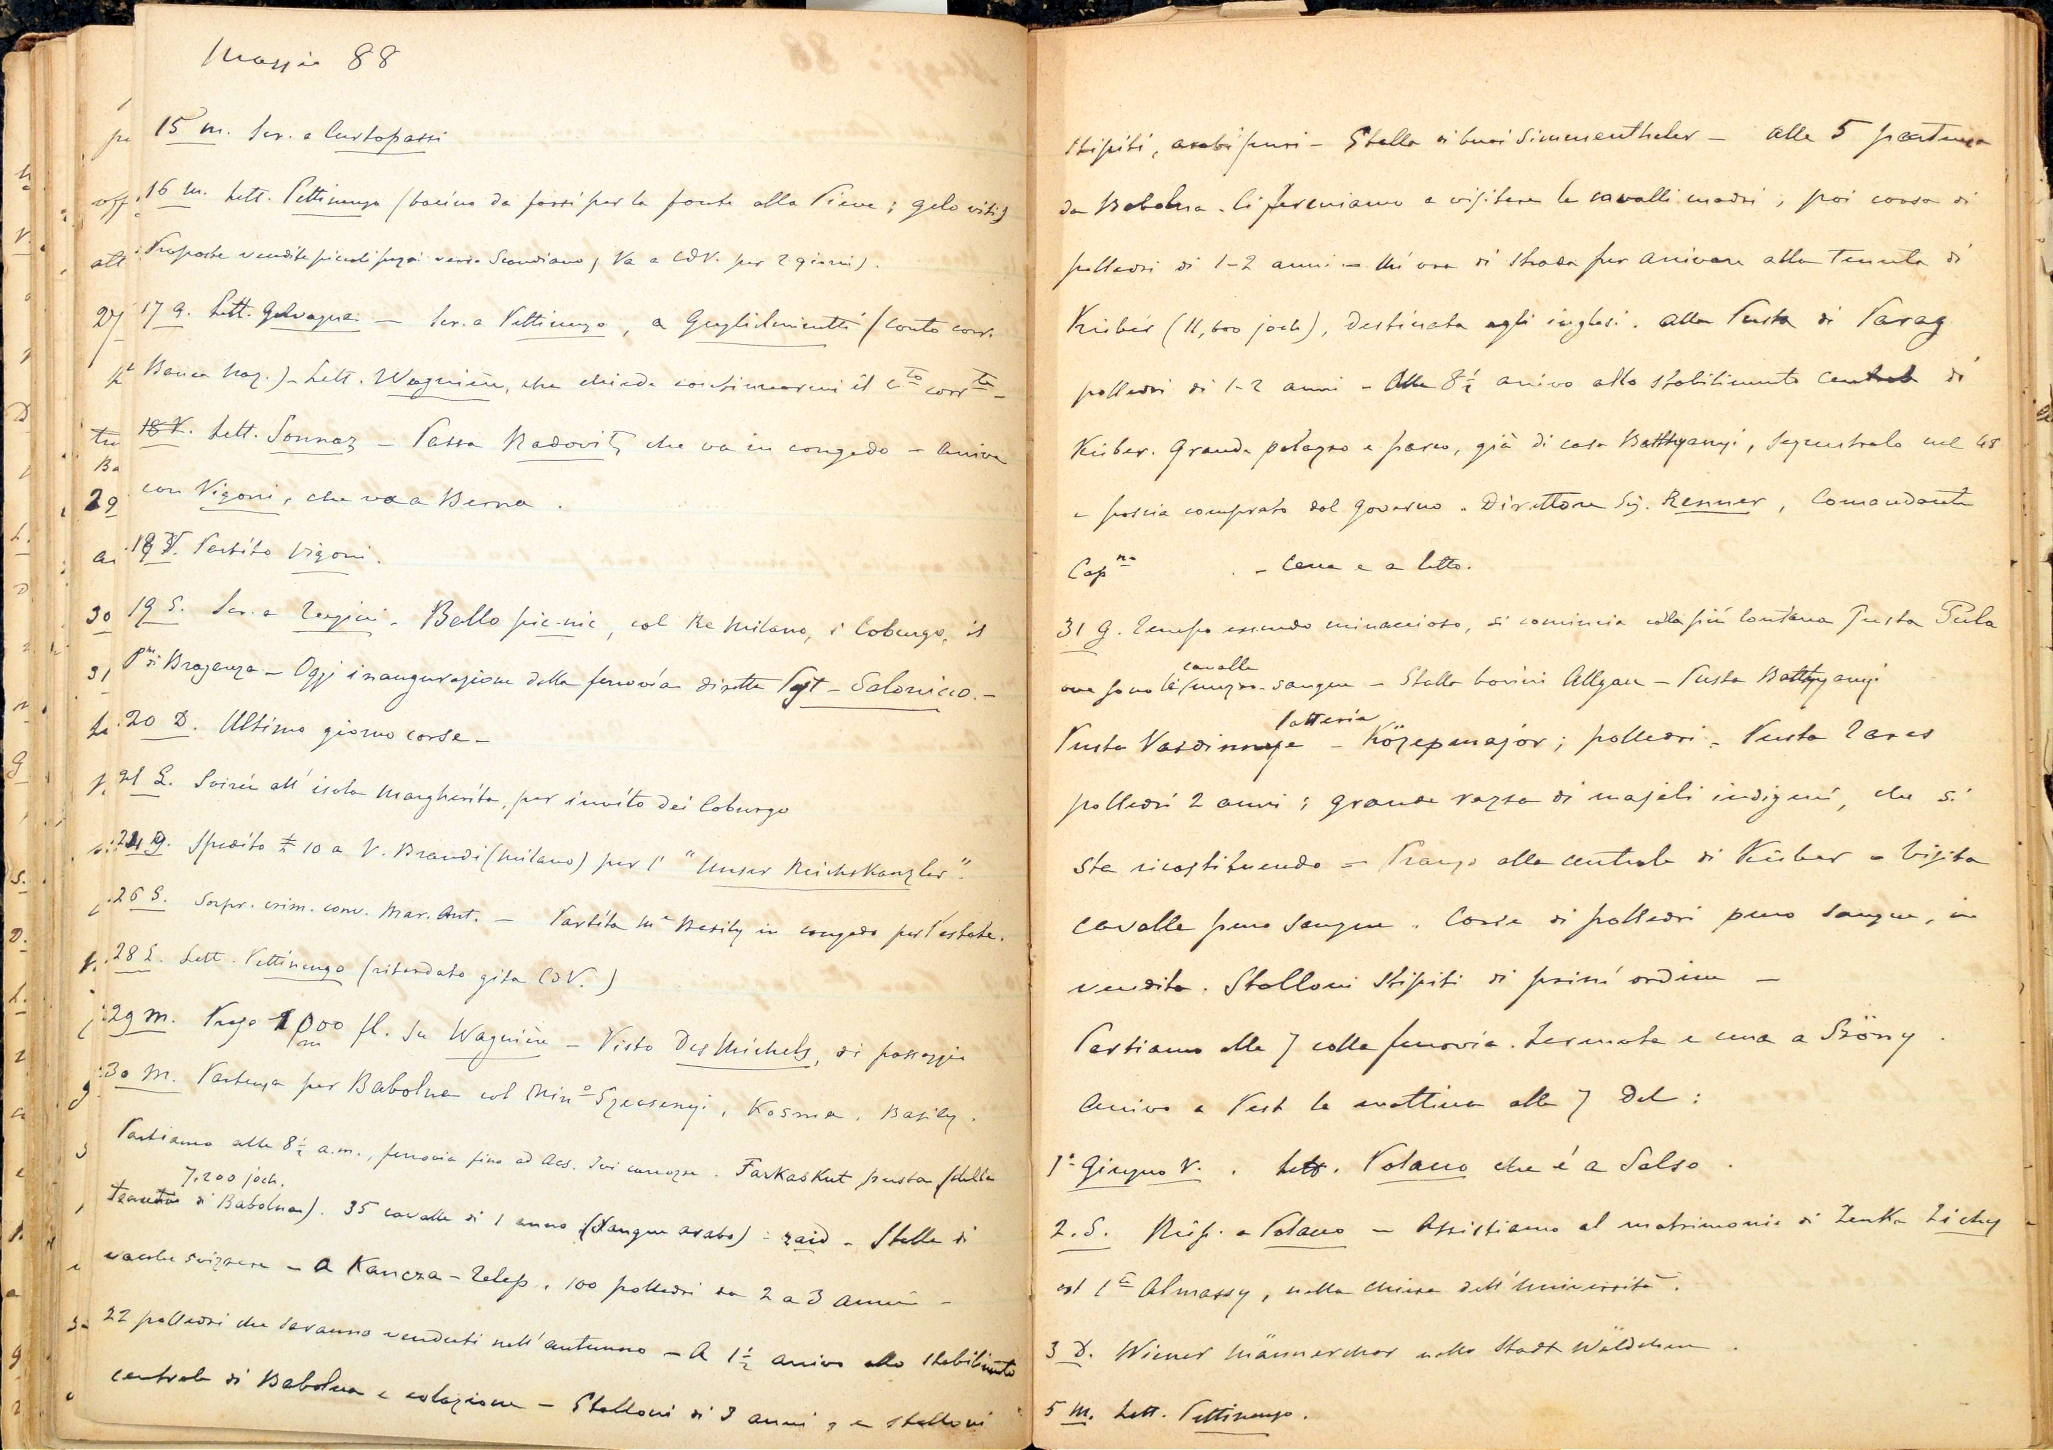 Maggio 88
15 M. Scr. a Curtopassi
16 M. Lett. Pettinengo (bacino da farsi per la fonte alla Pieve; gelo viti;
Proposte vendite piccoli pezzi verso Scandiano; Va a CdV. per 2 giorni).
17 G. Lett. Galvagna — Scr. a Pettinengo, a Guglielminetti (conto corr.
Banca Naz.) — Lett. Wagnière, che chiede continuarmi il cto corrte —
18 V. Lett. Sonnaz — Passa Radovitz che va in congedo — Arriva
con Vigoni, che va a Berna.
18 V. Partito Vigoni.
19 S. Scr. a — Ballo pic-nic, col Re Milano, i Coburgo, il
Pe di Braganza — Oggi inaugurazione della ferrovia diretta Pest — Salonicco. —
20 D. Ultimo giorno corse —
21 L. Soirée all' isola Margherita, per invito dei Coburgo
24 G. Spedito 10 a V. Brandi (Milano) per l' "Unser Reichskanzler".
26 S. Sospr. crim. conv. Mar. Ant. — Partita Me Basily in congedo per l'estate.
28 L. Lett. Pettinengo (ritardata gita CdV.)
29 M. Pago 1000 fl. su Wagnière — Visto Des Michels, di passaggio
30 M. Partenza per Babolna col Mino Szecsenyi, Kosma, Basily.
Partiamo alle 8½ a.m., ferrovia fino ad Acs. Ivi carrozze. Farkaskut, pusta (della
7,200 joch.
tenuta di Babolna). 35 cavalle di 1 anno (sangue arabo) : zaid — Stalla di
vacche svizzere — A Kancza-Telep, 100 polledri da 2 a 3 anni —
22 polledri che saranno venduti nell' autunno — A 1½ arrivo allo stabilimento
centrale di Babolna e colazione — Stalloni di 3 anni, e stalloni
stipiti, arabi puri — Stalla di buoi Simmenthaler — Alle 5 partenza
da Babolna. Ci fermiamo a visitare le cavalli madri, poi corsa di
polledri di 1-2 anni — Un'ora di strada per arrivare alla tenuta di
Kisbér (11,600 joch), destinata agli inglesi. Alla Pusta di Parag
polledri di 1-2 anni — Alle 8½ arrivo allo stabilimento centrale di
Kisber. Grande palazzo e parco, già di casa Batthyanyi, sequestrato nel 48
e poscia comprato dal Governo. Direttore Sig. Renner, Comandante
Capno . — Cena e a letto.
31 G. Tempo essendo minaccioso, si comincia colla più lontana Pusta Pula
cavalle
ove sono di mezzo-sangue — Stalla bovini Allgau — Pusta Batthyanyi
latteria
Pusta Vasdinnye — Középmajór; polledri — Pusta Tarcs
polledri 2 anni; grande razza di majali indigeni, che si
sta ricostituendo — Pranzo alla centrale di Kisber — Visita
cavalle puro sangue. Corse di polledri puro sangue, in
vendita. Stalloni stipiti di prim' ordine —
Partiamo alle 7 colla ferrovia. Fermata e cena a Szöny.
Arrivo a Pest la mattina alle 7 del :
1o Giugno V. . Lett. Polacco che è a Salso.
2. S. Risp. a Polacco — Assistiamo al matrimonio di Lenka Zichy
col Cte Almassy, nella chiesa dell' Università.
3 D. Wiener Männerchor nello Stadt Wäldchen.
5 M. Lett. Pettinengo.